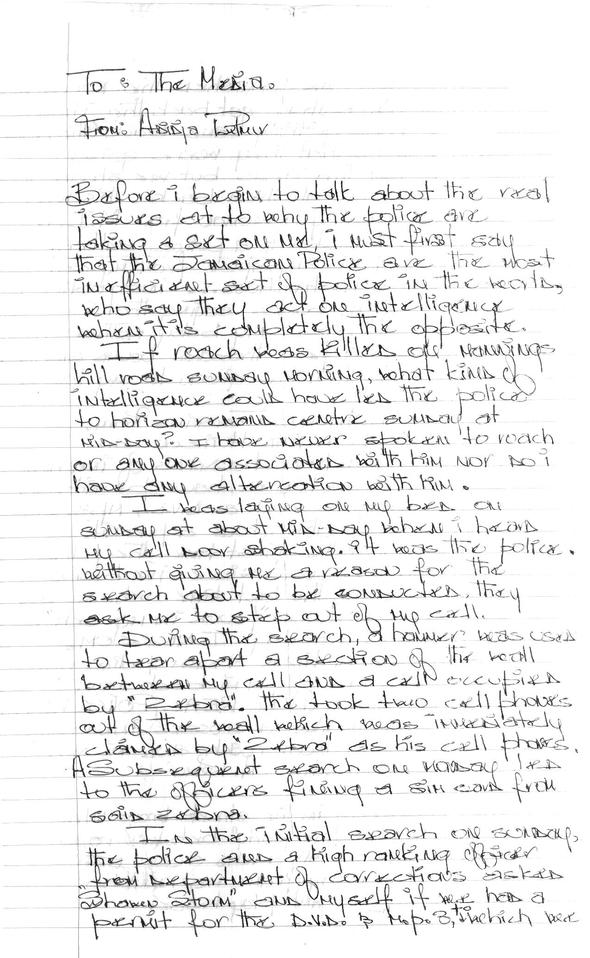 To : The Media.
From: Adidja Palmer
Before i begin to talk about the real
issues at to why the police are
taking a set on me, i must first say
that the Jamaican Police are the most
inefficient set of police in the world,
who say they act on intelligence
when it is completely the opposite.
If roach was killed on mannings
hill road sunday morning, what kind of
intelligence could have led the police
to horizon remand centre sunday at
mid-day? I have never spoken to roach
or any one associated with him nor do i
have any altercation with him.
I was laying on my bed on
sunday at about mid-day when i heard
my cell door shaking. it was the police.
without giving me a reason for the
search about to be conducted, they
ask me to step out of my cell.
During the search, a hammer was used
to tear apart a section of the wall
between my cell and a cell occupied
by "Zebra". the took two cell phones
out of the wall which was immediately
claimed by "Zebra" as his cell phones.
A Subsequent search on monday led
to the officers fining a sim card from
said zebra.
In the initial search on sunday,
the police and a high ranking officer
from department of corrections asked
"Shawn Storm" and myself if we had a
permit for the D.V.D. & M.p.3, in which we